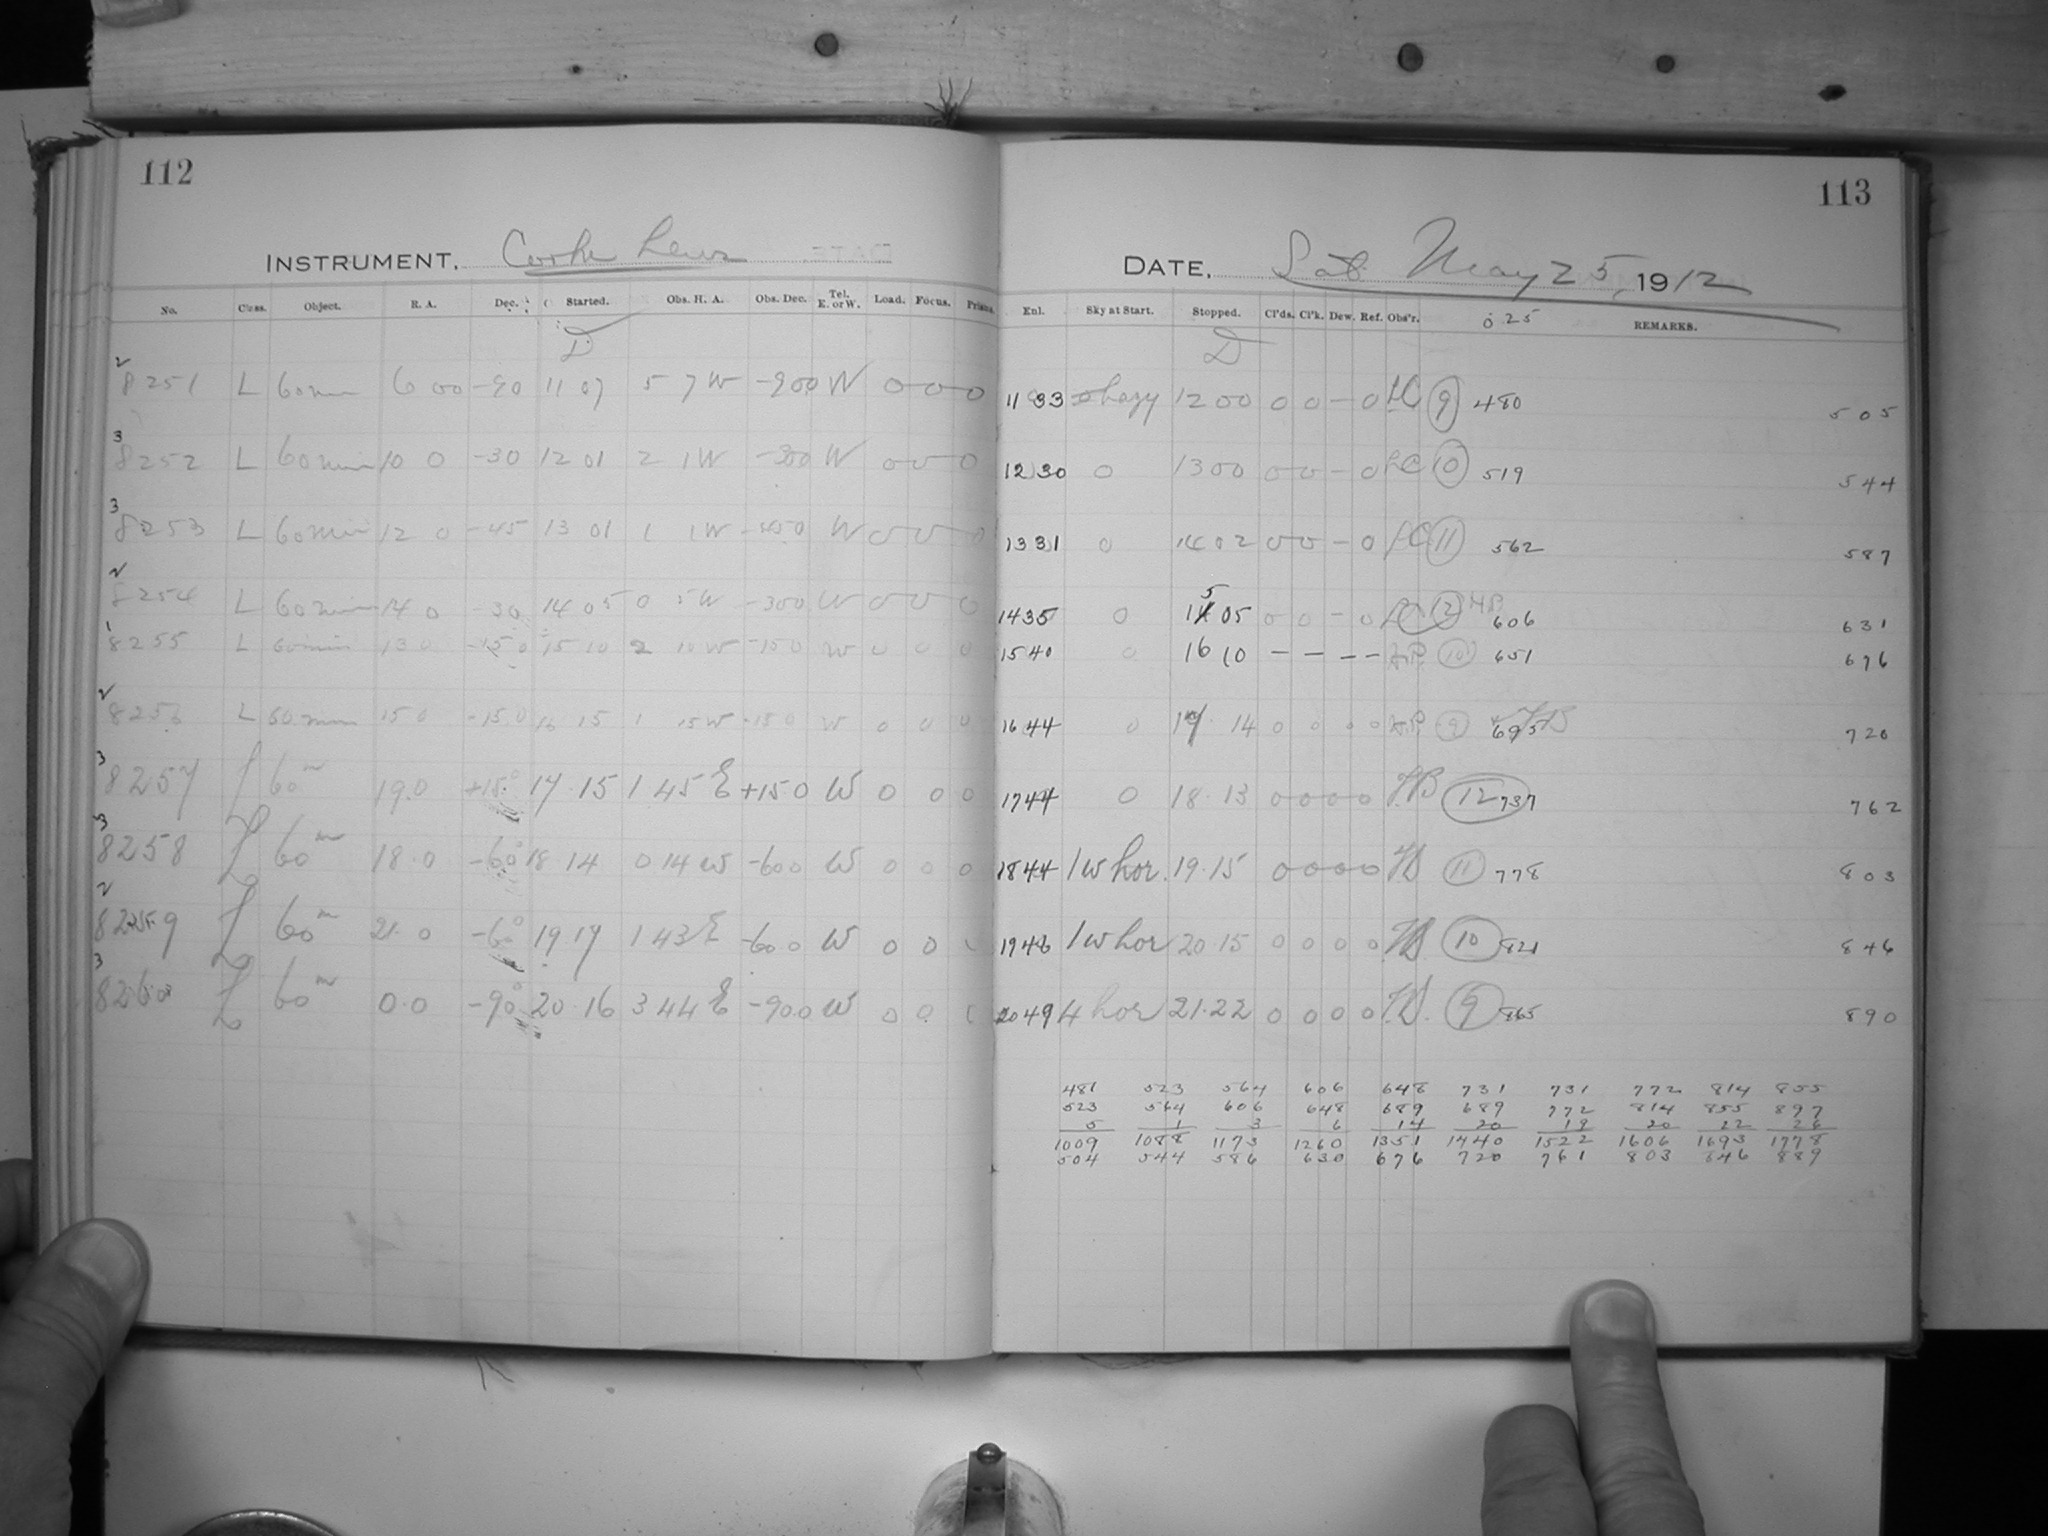 112
INSTRUMENT. Cooke Lens
No. Class. Object. R. A. Dec. Started. Obs. H. A. Obs. Dec. Tel. E. or W. Load. Focus. Prisms.
D
2
8251 L 60 min 6 00 -90 11 07 5 7 W -900 W 0 0 0
3
8252 L 60 min 10 0 -30 12 01 2 1 W -300 W 0 0 0
3
8253 L 60 min 12 0 -45 13 01 1 1 W -450 W 0 0 0
2
8254 L 60 min 14 0 -30 14 05 0 5 W -300 W 0 0 0
1
8255 L 60 min 13 0 -15 0 15 10 2 10 W -150 W 0 0 0
2
8256 L 60 min 15 0 -15.0 16 15 1 15 W -150 W 0 0 0
3
8257 L 60 m 19.0 +15.° 17.15 1 45 E +150 W 0 0 0
3
8258 L 60 m 18.0 -60° 18 14 0 14 W -600 W 0 0 0
2
8259 L 60 m 21.0 -60° 19 17 1 43 E -600 W 0 0
3
8260 L 60 m 0.0 -90° 20.16 3 44 E -900 W 0 0
113
DATE. Sat. May 25, 1912
Enl. Sky at Start. Stopped. Cl'ds. Cl'k. Dew. Ref. Obs'r. 0.25 REMARKS.
D
11 33 hazy 12 00 0 0 - 0 LC 9 480 505
12 30 0 13 00 0 0 - 0 LC 10 519 544
13 31 0 14 02 0 0 - 0 LC 11 562 587
14 35 0 15 05 0 0 - 0 LC 12 606 631
15 40 0 16 10 - - - - 10 651 676
16 44 0 17 14 0 0 0 0 9 695 720
17 44 0 18.13 0 0 0 0 12 737 762
18 44 1 w hor. 19.15 0 0 0 0 11 778 803
19 46 1 w hor 20.15 0 0 0 0 10 821 846
20 49 4 hor 21.22 0 0 0 0 9 865 890
481 523 564 606 648 731 731 772 814 855
523 564 606 648 689 689 772 814 855 897
5 1 3 6 14 20 19 20 22 26
1009 1088 1173 1260 1351 1440 1522 1606 1693 1778
504 544 586 630 676 720 761 803 846 889